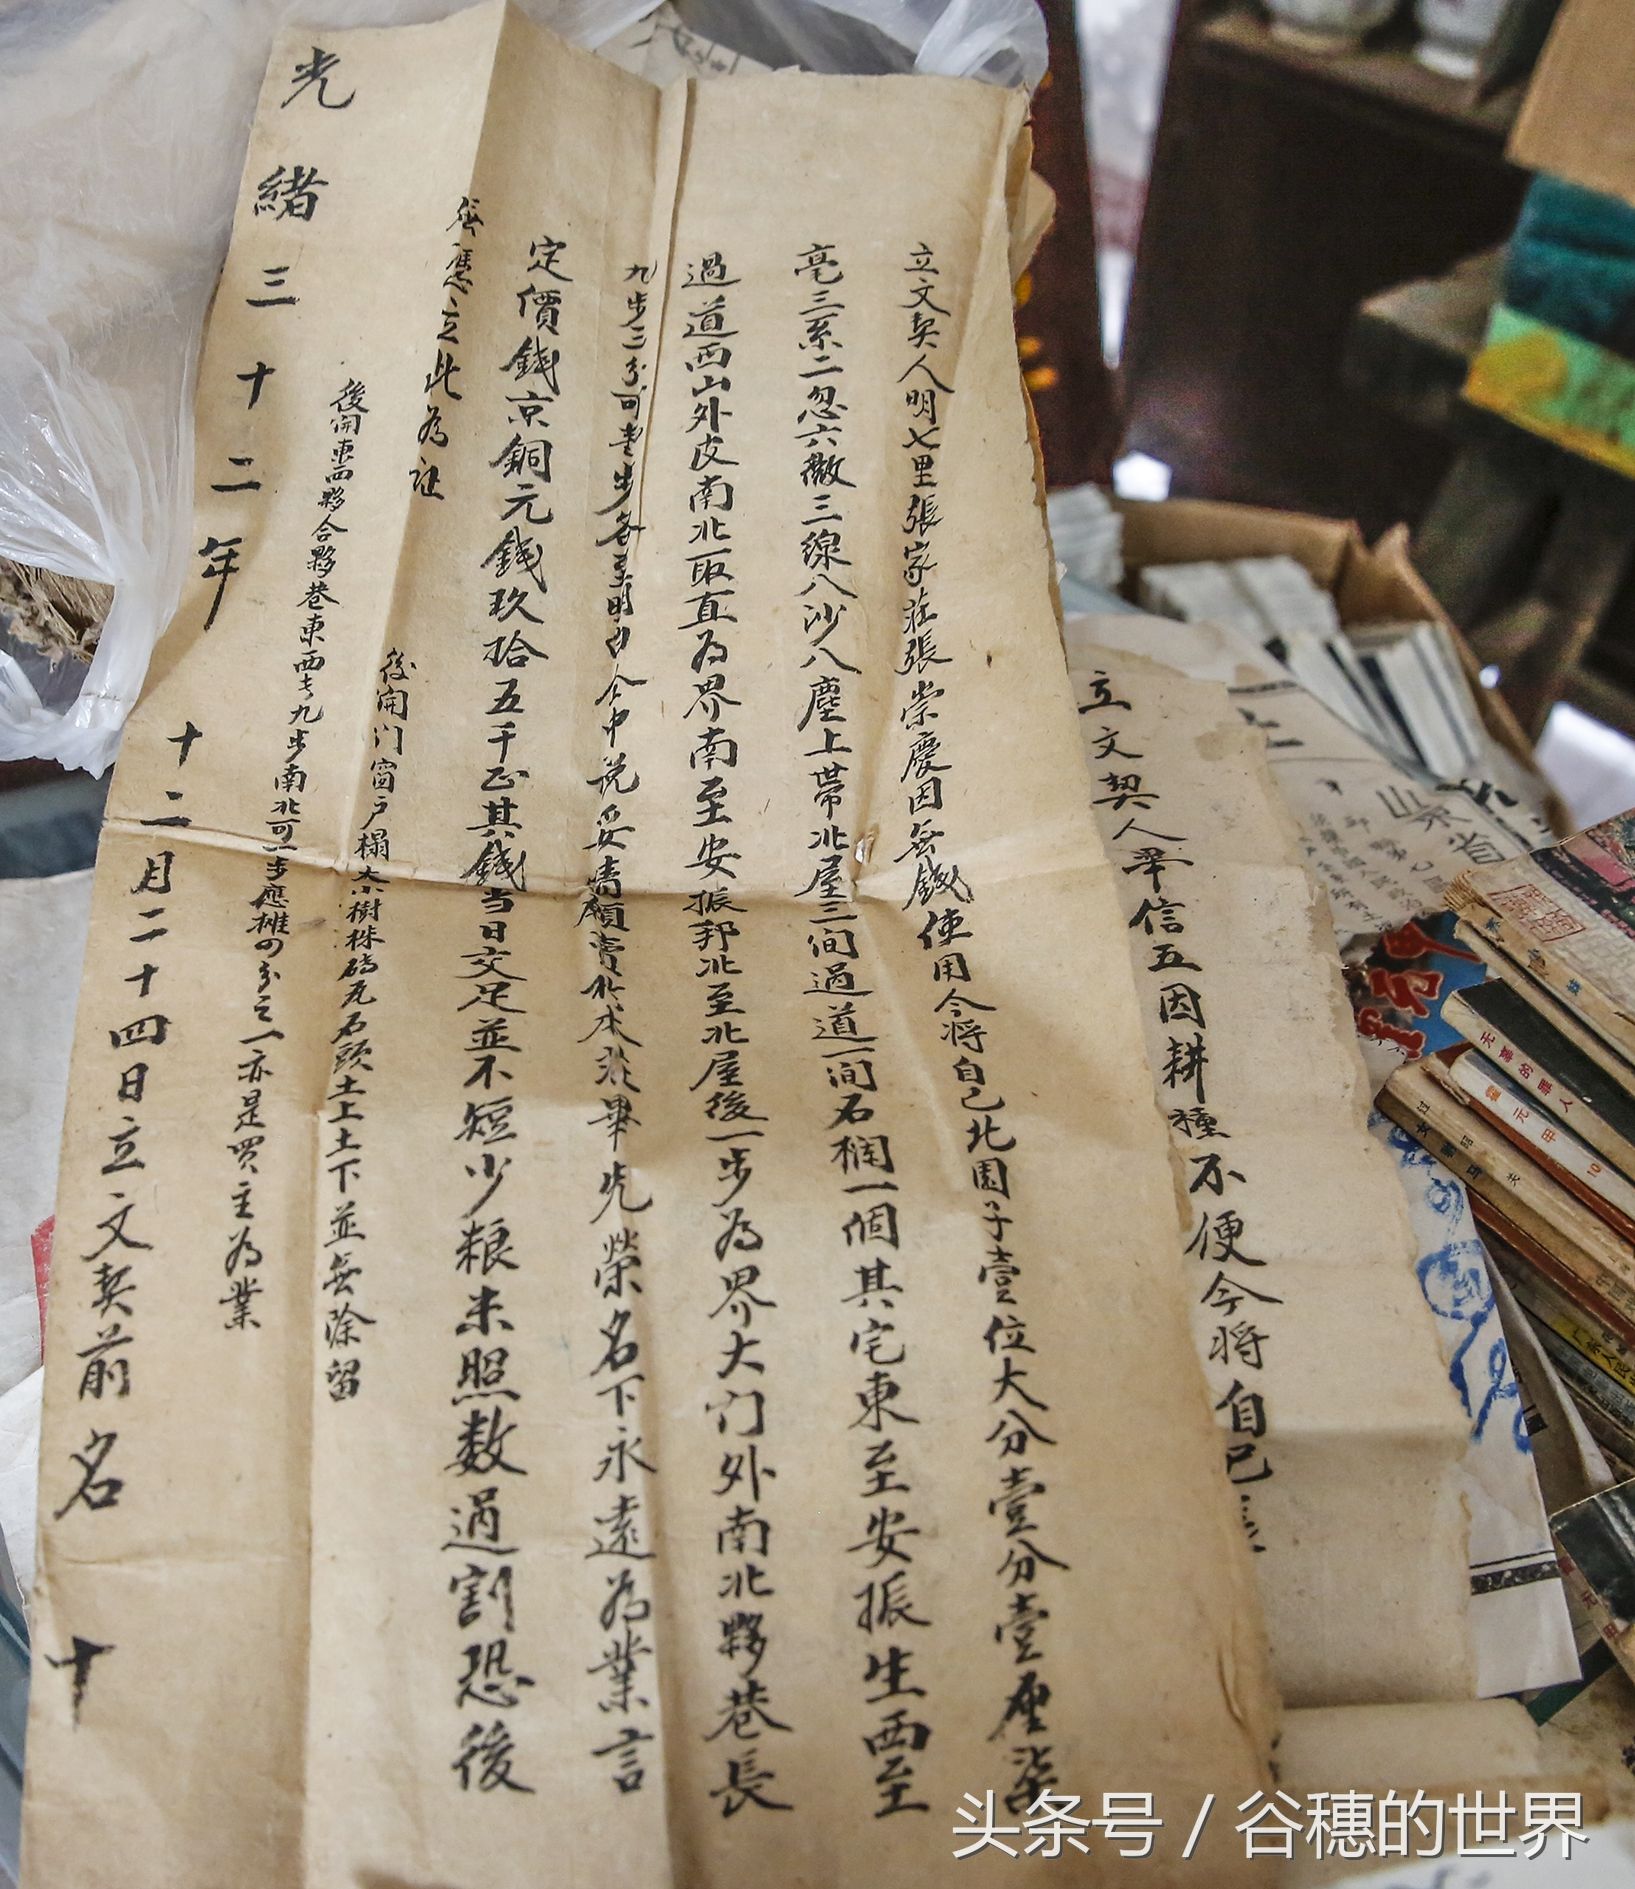 立文契人明七里張家莊張崇慶因無錢使用今將自己北園子壹位大分壹分壹厘柒
毫三系二忽六微三線八沙八塵上帶北屋三间過道一间石欄一個其宅東至安振生西至
過道西山外皮南北取直為界南至安振邦北至北屋後一步為界大门外南北夥巷長
九步二分可壹步各至明白仝中说妥情願賣於本莊畢先榮名下永遠為業言
定價錢京銅元錢玖拾五千正其錢当日交足並不短少粮米照数過割恐後
無憑立此為证
後開门窗户榻大小樹株磚瓦石頭土上土下並無除留
後開東西夥合夥巷東西长九步南北可一步應攤四分之一亦是買主為業
光緒三十二年十二月二十四日立文契前名 十
立文契人畢信五因耕種不便今將自己
山东省
无辜的罪人
头条号 / 谷穗的世界